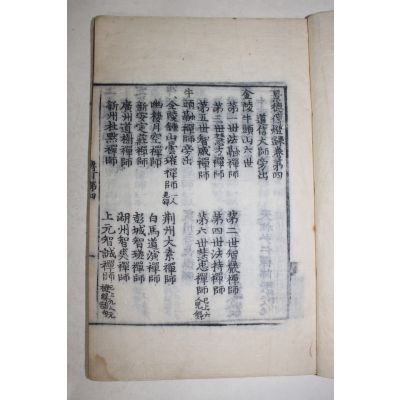 景德傳燈錄卷第四
道信大師旁出
金陵牛頭山六世
第一世法融禪師 第二世智巖禪師
第三世慧方禪師 第四世法持禪師
第五世智威禪師 第六世慧忠禪師
牛頭融禪師
金陵鍾山曇璀禪師 荊州大素禪師
幽棲月空禪師 白馬道演禪師
新安定莊禪師 彭城智瑳禪師
廣州道樹禪師 湖州智爽禪師
新州杜默禪師 上元智誠禪師